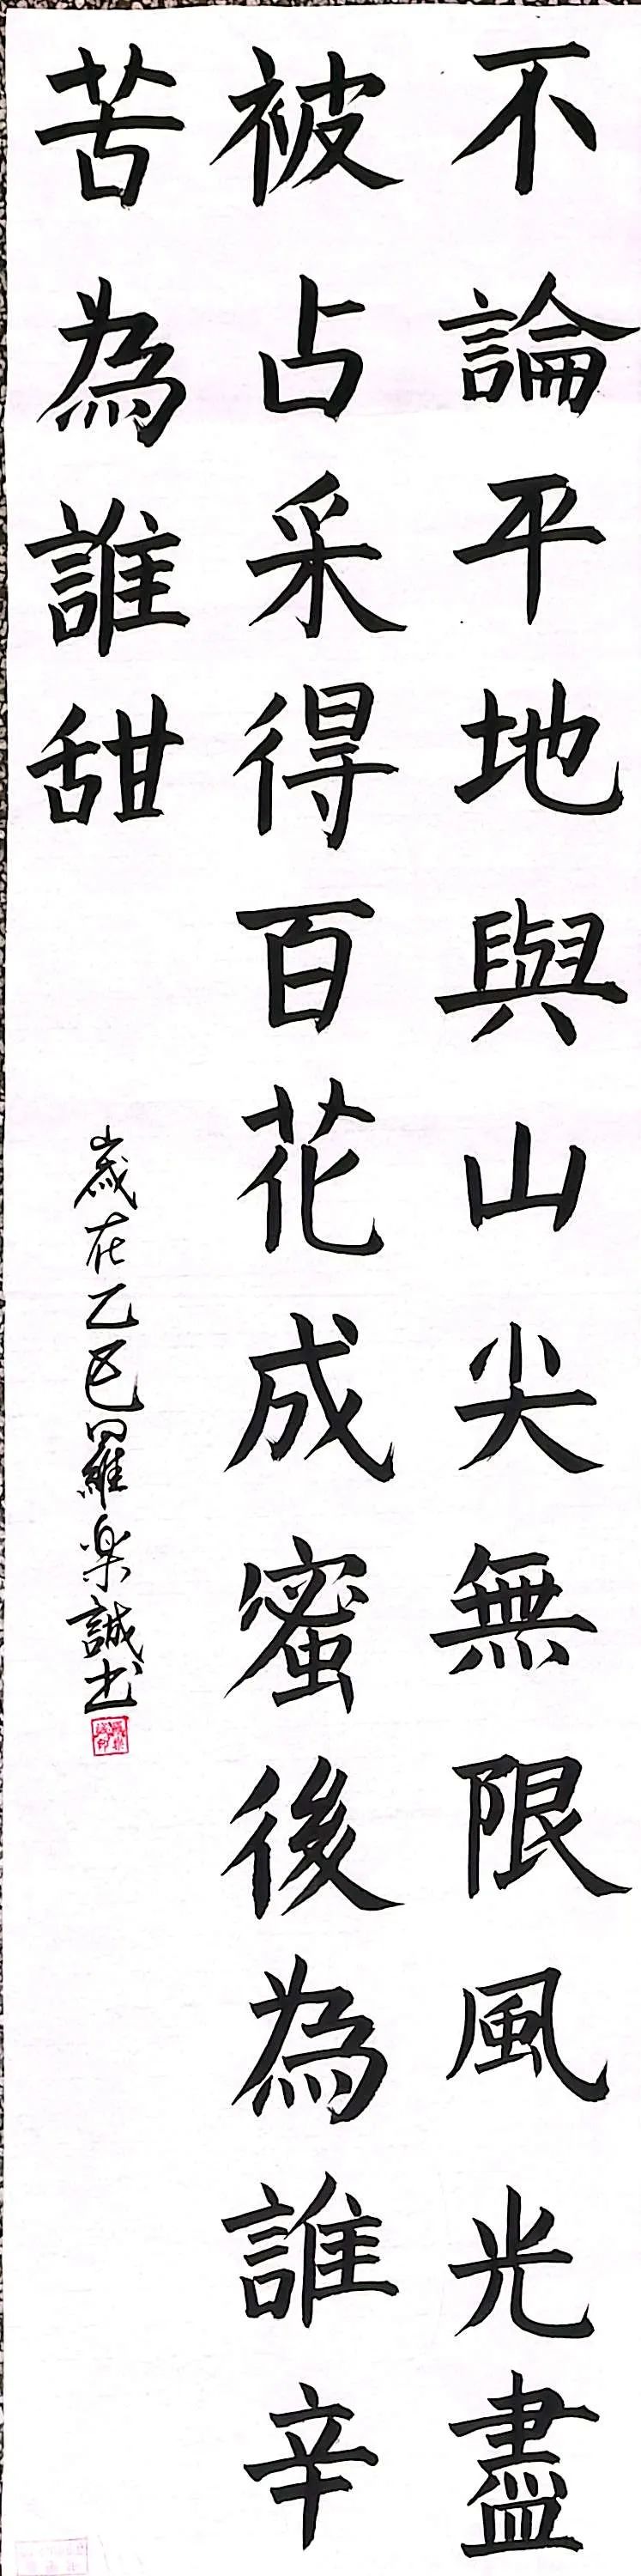 不論平地與山尖無限風光盡
被占采得百花成蜜後為誰辛
苦為誰甜
歲在乙巳羅楽誠书